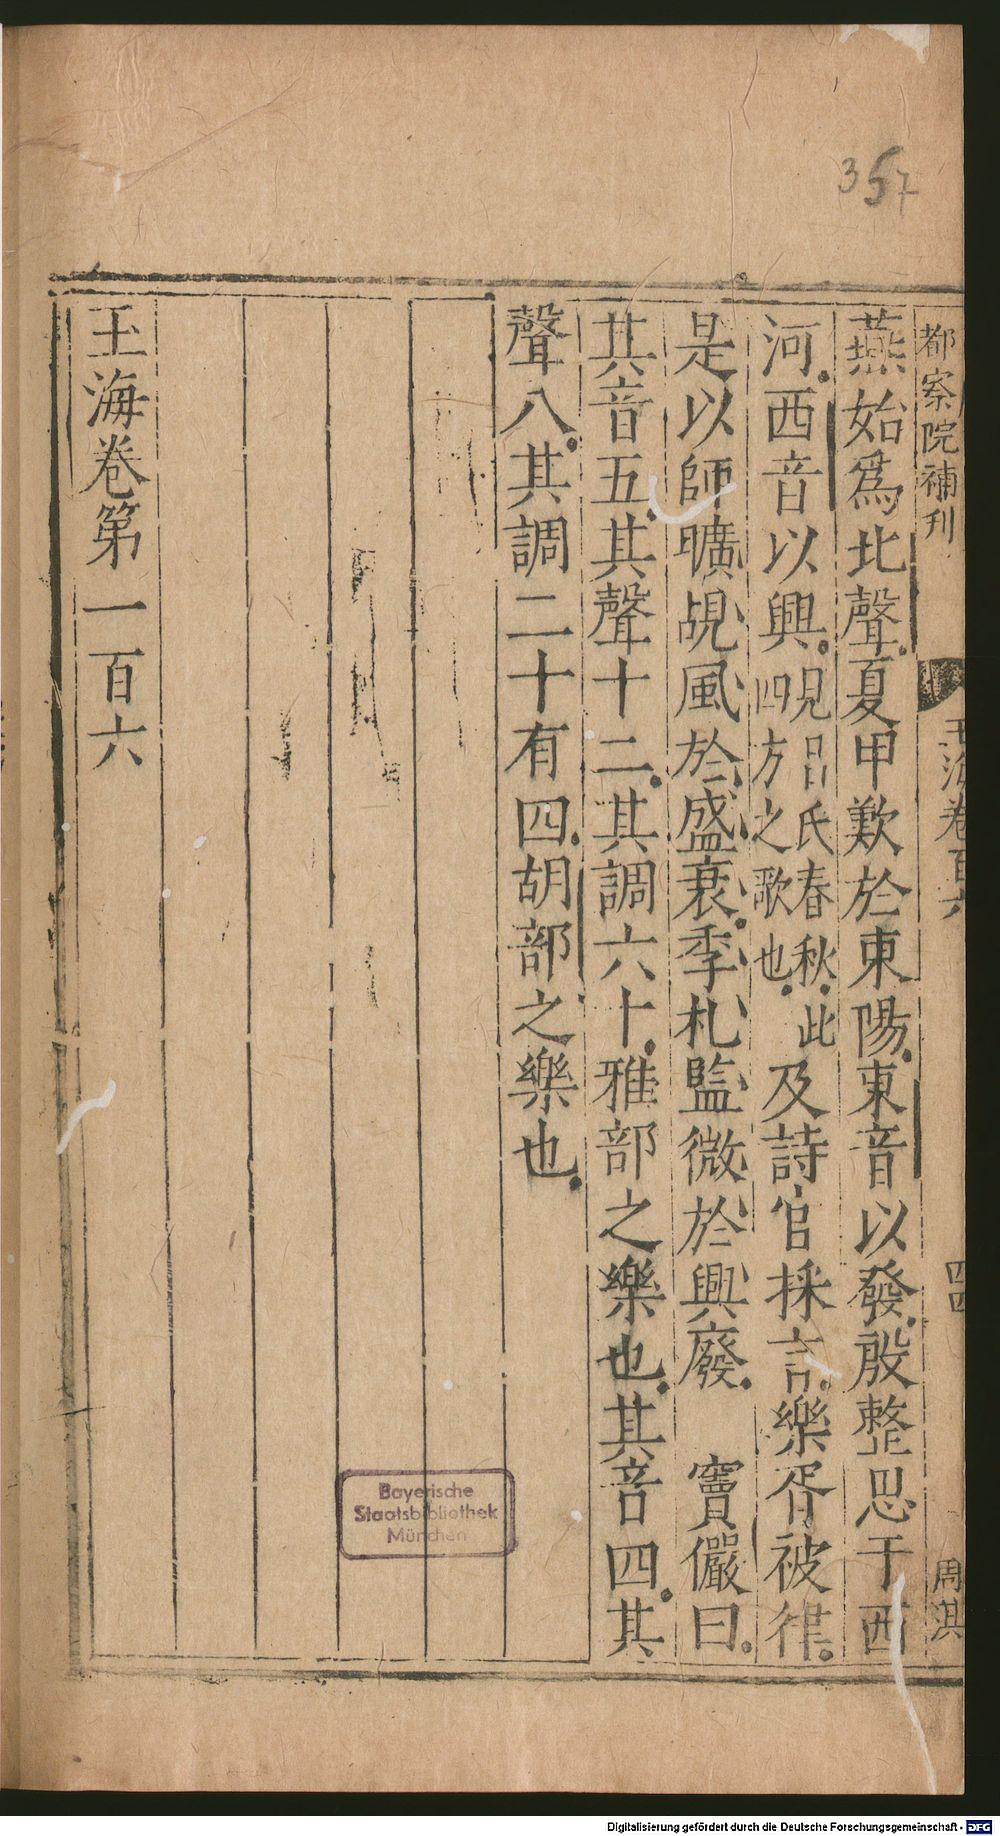 357
都察院補刊
玉海卷百六
四四
周淇
燕始爲北聲夏甲歎於東陽東音以發殷整思于西
河西音以興見呂氏春秋此四方之歌也及詩官採言樂胥被律
是以師曠覘風於盛衰季札監微於興廢 竇儼曰
其音五其聲十二其調六十雅部之樂也其音四其
聲八其調二十有四胡部之樂也
玉海卷第一百六
Bayerische
Staatsbibliothek
München
Digitalisierung gefördert durch die Deutsche Forschungsgemeinschaft - DFG